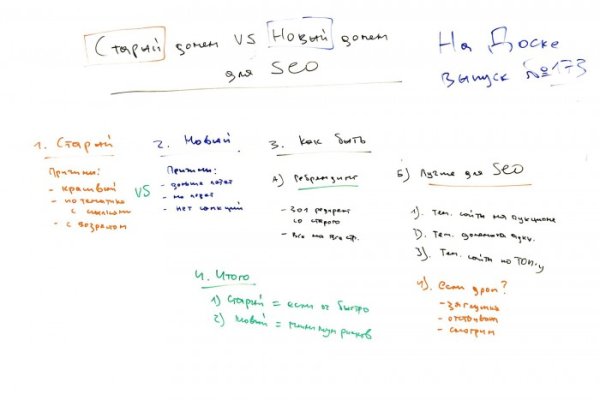 Старый домен VS Новый домен
для SEO
На Доске
выпуск №173
1. Старый
Причины:
- красивый
- по тематике
с ссылками
- с возрастом
VS
2. Новый
Причины:
- дольше
- нет санкций
3. Как быть
А) Ребрендинг
- 301 редирект
со старого
- Все на все стр.
Б) Лучше для SEO
1). Тем. сайты на аукционе
2). Тем. домены аукц.
3). Тем. сайты по ТОП-у
4). Если дроп?
- загрузка
- отстояться
- смотрим
4. Итого
1) Старый = если оч быстро
2) Новый = минимум рисков